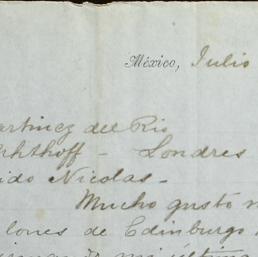 México, Julio
artinez del Rio
chthoff - Londres
ido Nicolas -
Mucho gusto
lones de Edinburgo